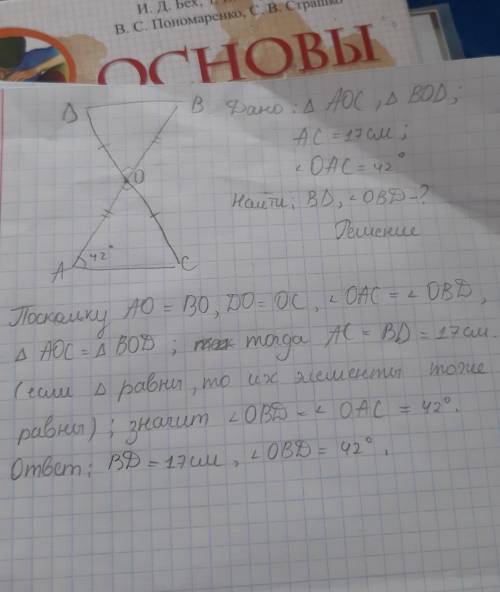 И. Д. Бех,
В. С. Пономаренко, С. В. Страшко
ОСНОВЫ
D B Дано: Δ AOC, Δ BOD;
AC = 17 см;
O ∠OAC = 42°
Найти: BD, ∠OBD - ?
Решение
A 42° C
Поскольку AO = BO, DO = OC, ∠OAC = ∠OBD,
Δ AOC = Δ BOD; тогда AC = BD = 17 см.
(если Δ равны, то их элементы тоже
равны); значит ∠OBD = ∠OAC = 42°.
Ответ: BD = 17 см, ∠OBD = 42°.